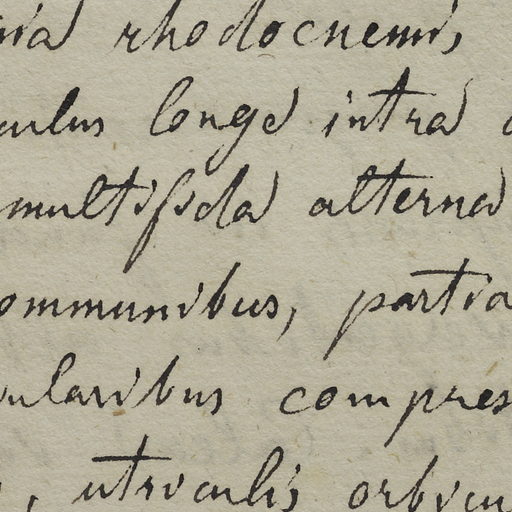 nia rhodocnemis,
culus longe intra
multifida alterna
ommunibus, partia
ularibus compres
, utriculis orbicu